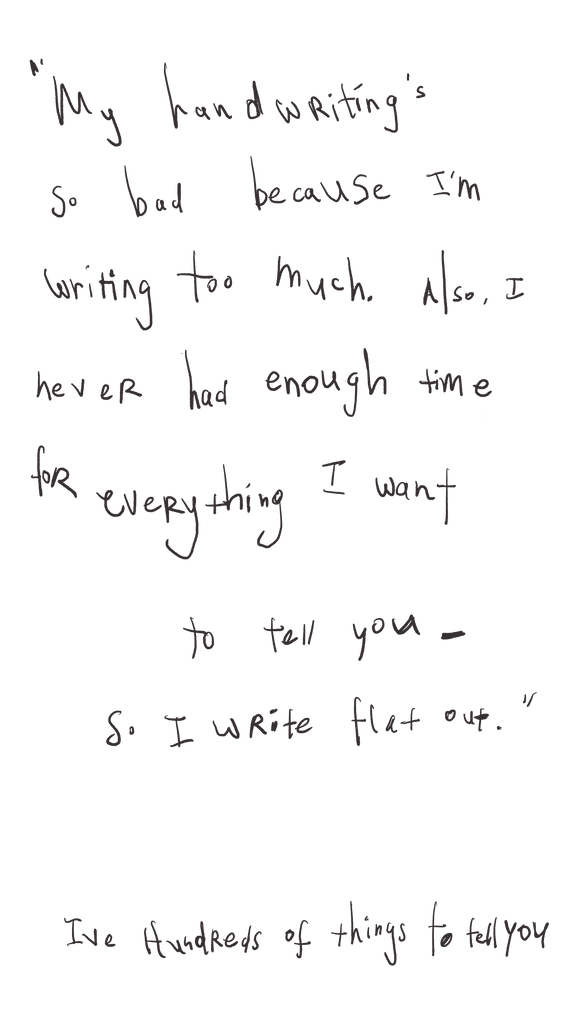 "My handwriting's
so bad because I'm
writing too much. Also, I
never had enough time
for everything I want
to tell you -
So I write flat out."
Ive Hundreds of things to tell you